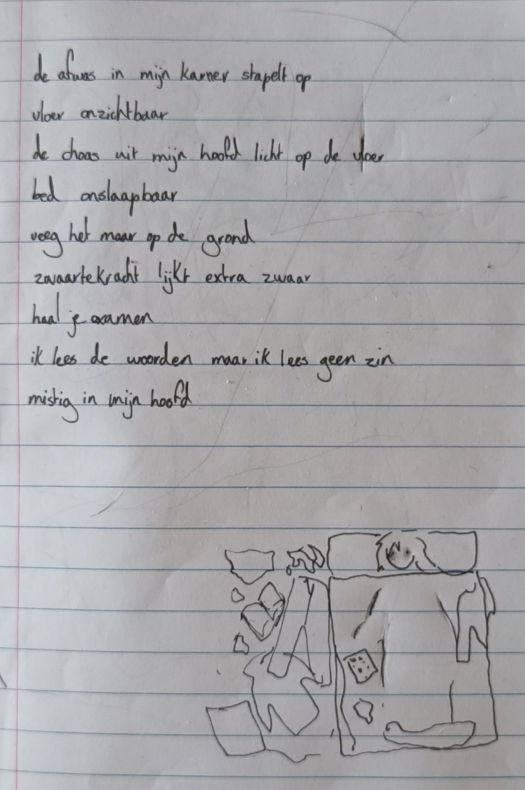 de afwas in mijn kamer stapelt op
vloer onzichtbaar
de choas uit mijn hoofd licht op de vloer
bed onslaapbaar
veeg het maar op de grond
zwaartekracht lijkt extra zwaar
haal je examen
ik lees de woorden maar ik lees geen zin
mistig in mijn hoofd